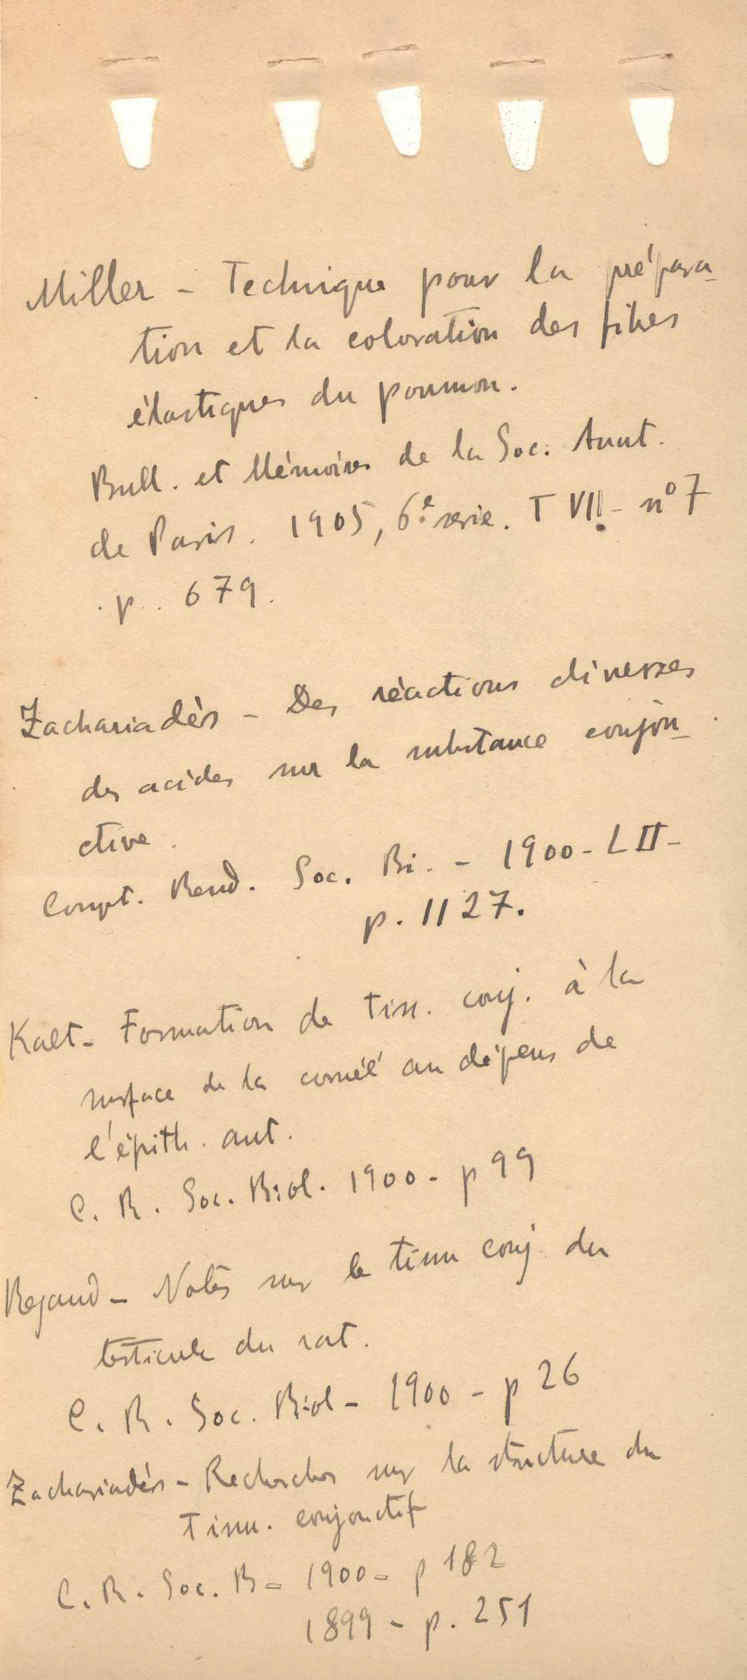 Miller - Technique pour la prépara-
tion et la coloration des fibres
élastiques du poumon.
Bull. et Mémoires de la Soc. Anat.
de Paris. 1905, 6e serie. T VII - nº 7
p. 679.
Zachariadès - Des réactions diverses
des acides sur la substance conjon-
ctive.
Compt. Rend. Soc. Bi. - 1900 - LII -
p. 1127.
Kalt - Formation de tiss. conj. à la
surface de la cornéé au dépens de
l'épith. ant.
C. R. Soc. Biol. 1900 - p 99
Regaud - Notes sur le tissu conj du
testicule du rat.
C. R. Soc. Biol - 1900 - p 26
Zachariadès - Recherches sur la structure du
Tissu. conjonctif
C. R. Soc. B - 1900 - p 182
1899 - p. 251